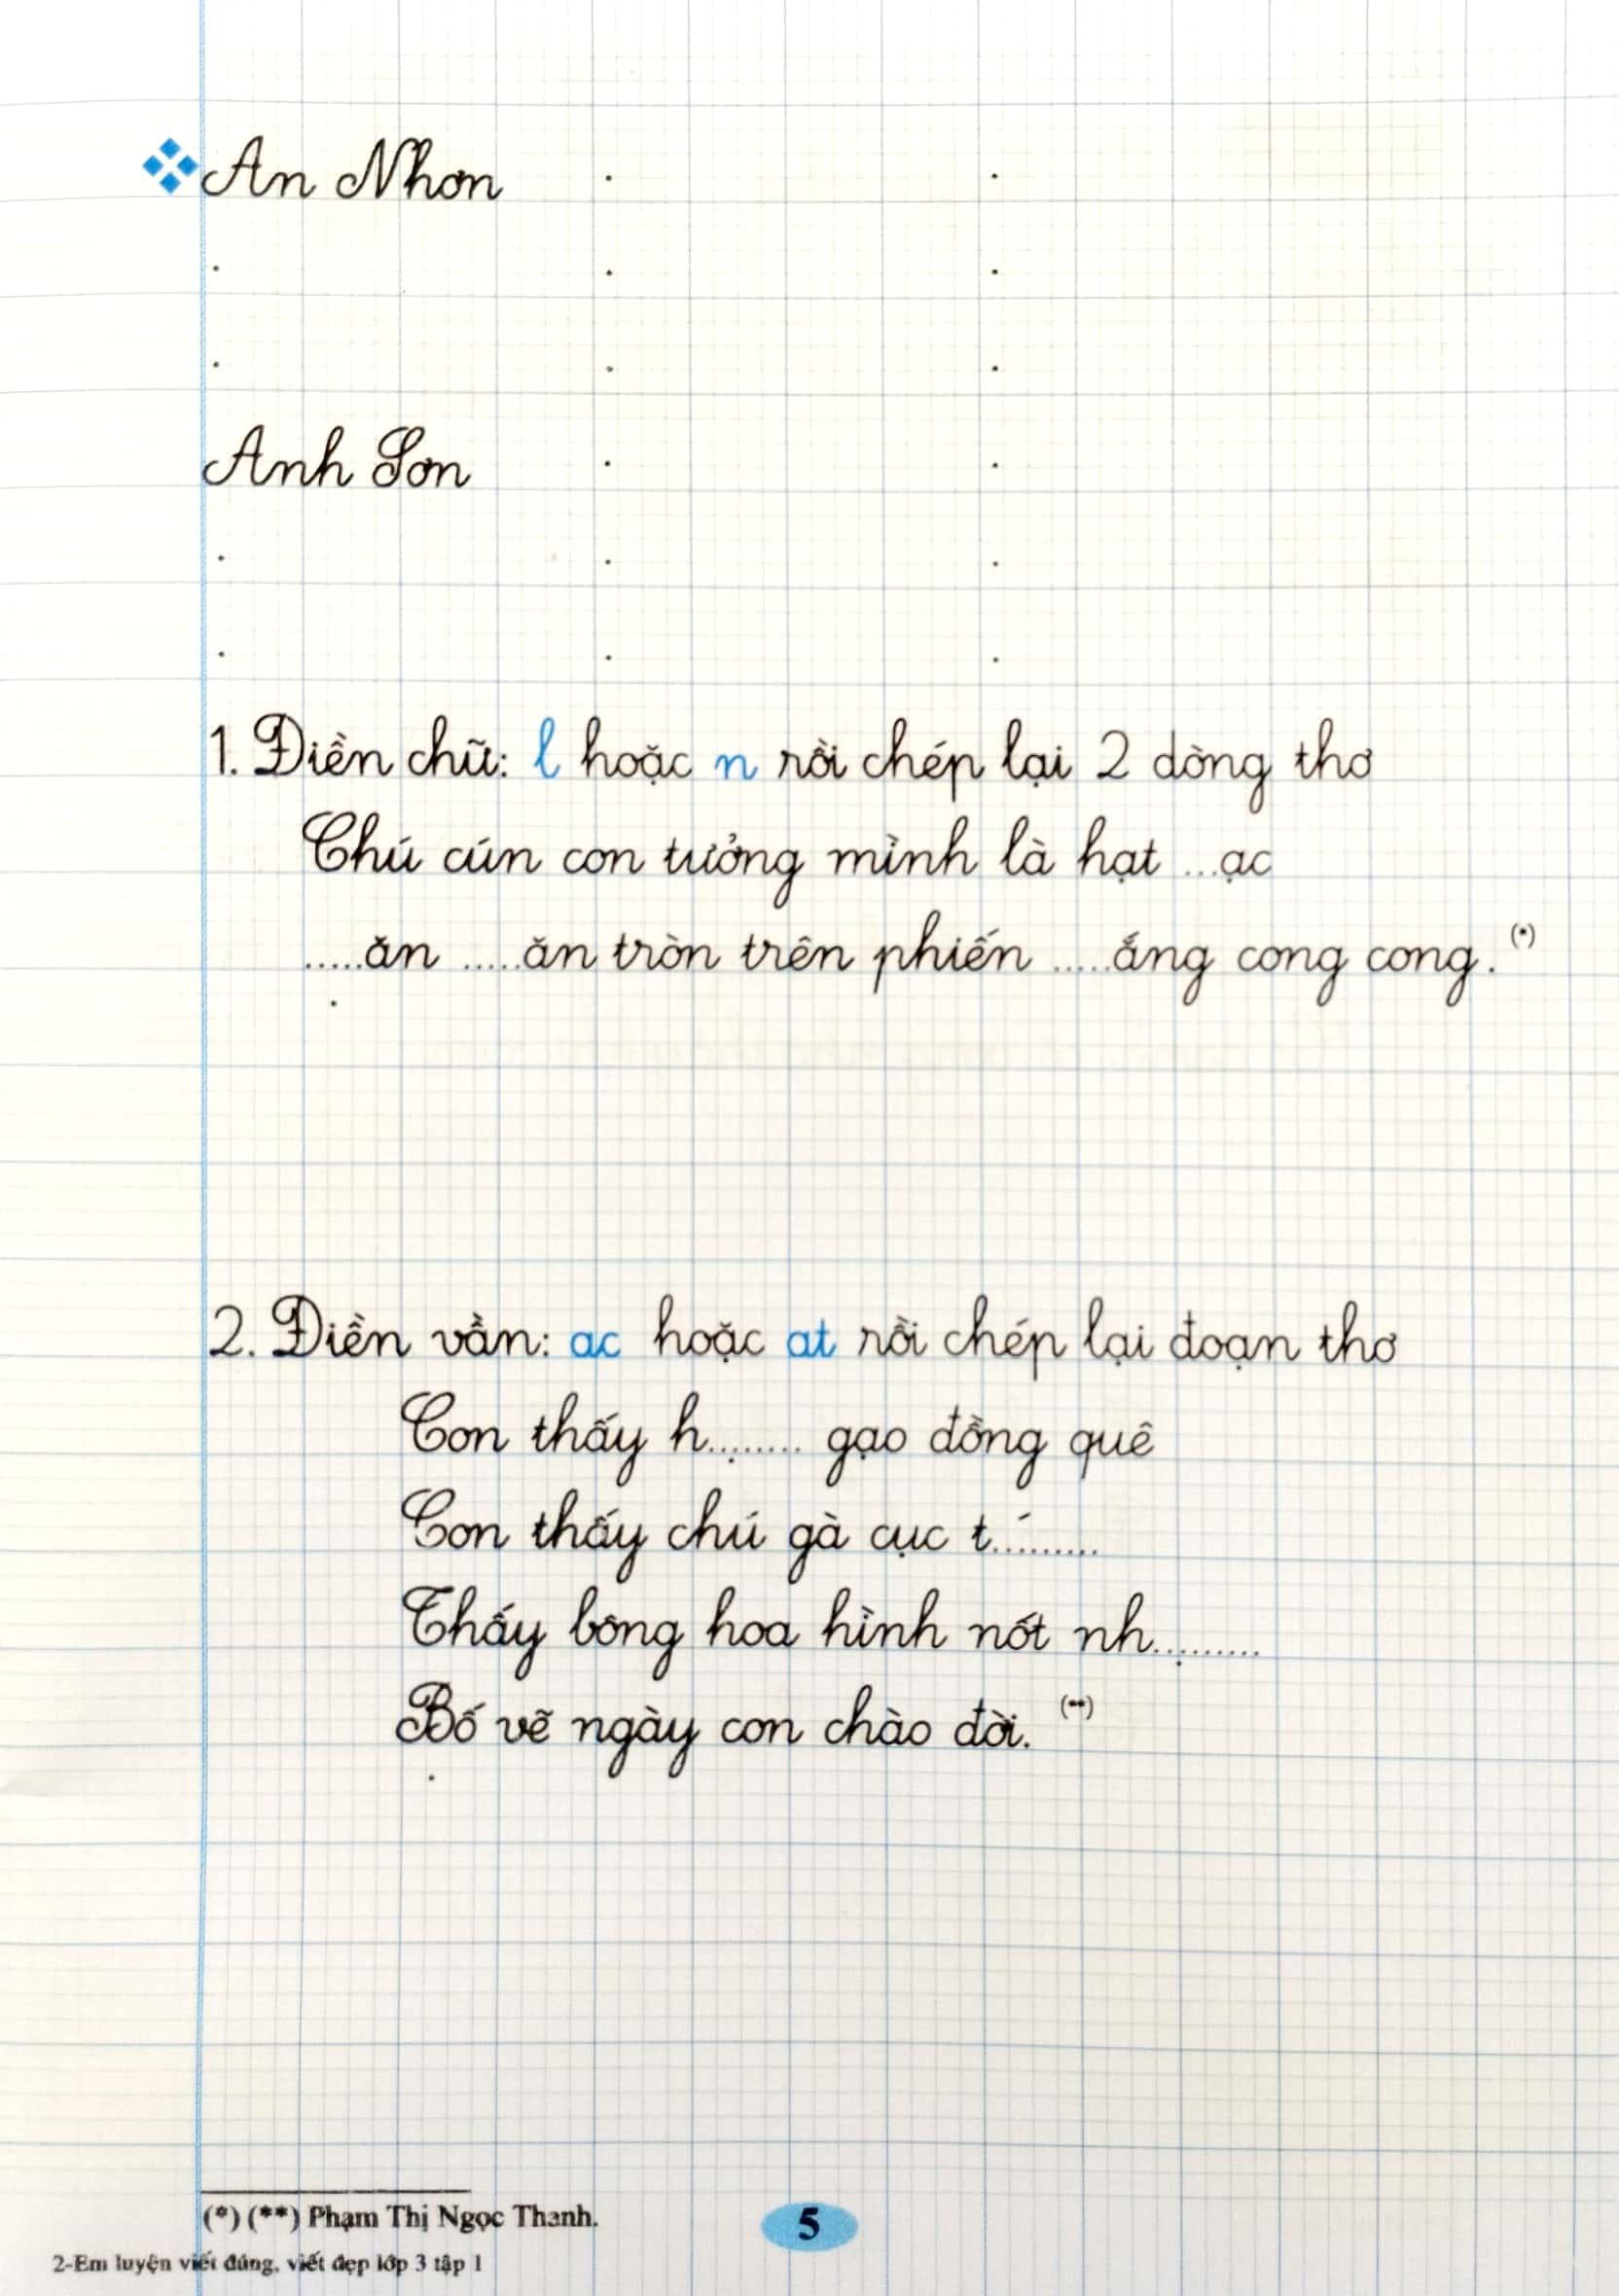 An Nhơn
Anh Sơn
1. Điền chữ: l hoặc n rồi chép lại 2 dòng thơ
Chú cún con tưởng mình là hạt ...ạc
.....ăn .....ăn tròn trên phiến .....ắng cong cong. (*)
2. Điền vần: ac hoặc at rồi chép lại đoạn thơ
Con thấy h..̣...... gạo đồng quê
Con thấy chú gà cục t..́.......
Thấy bông hoa hình nốt nh..̣.......
Bố vẽ ngày con chào đời. (**)
(*) (**) Phạm Thị Ngọc Thanh.
5
2-Em luyện viết đúng, viết đẹp lớp 3 tập 1